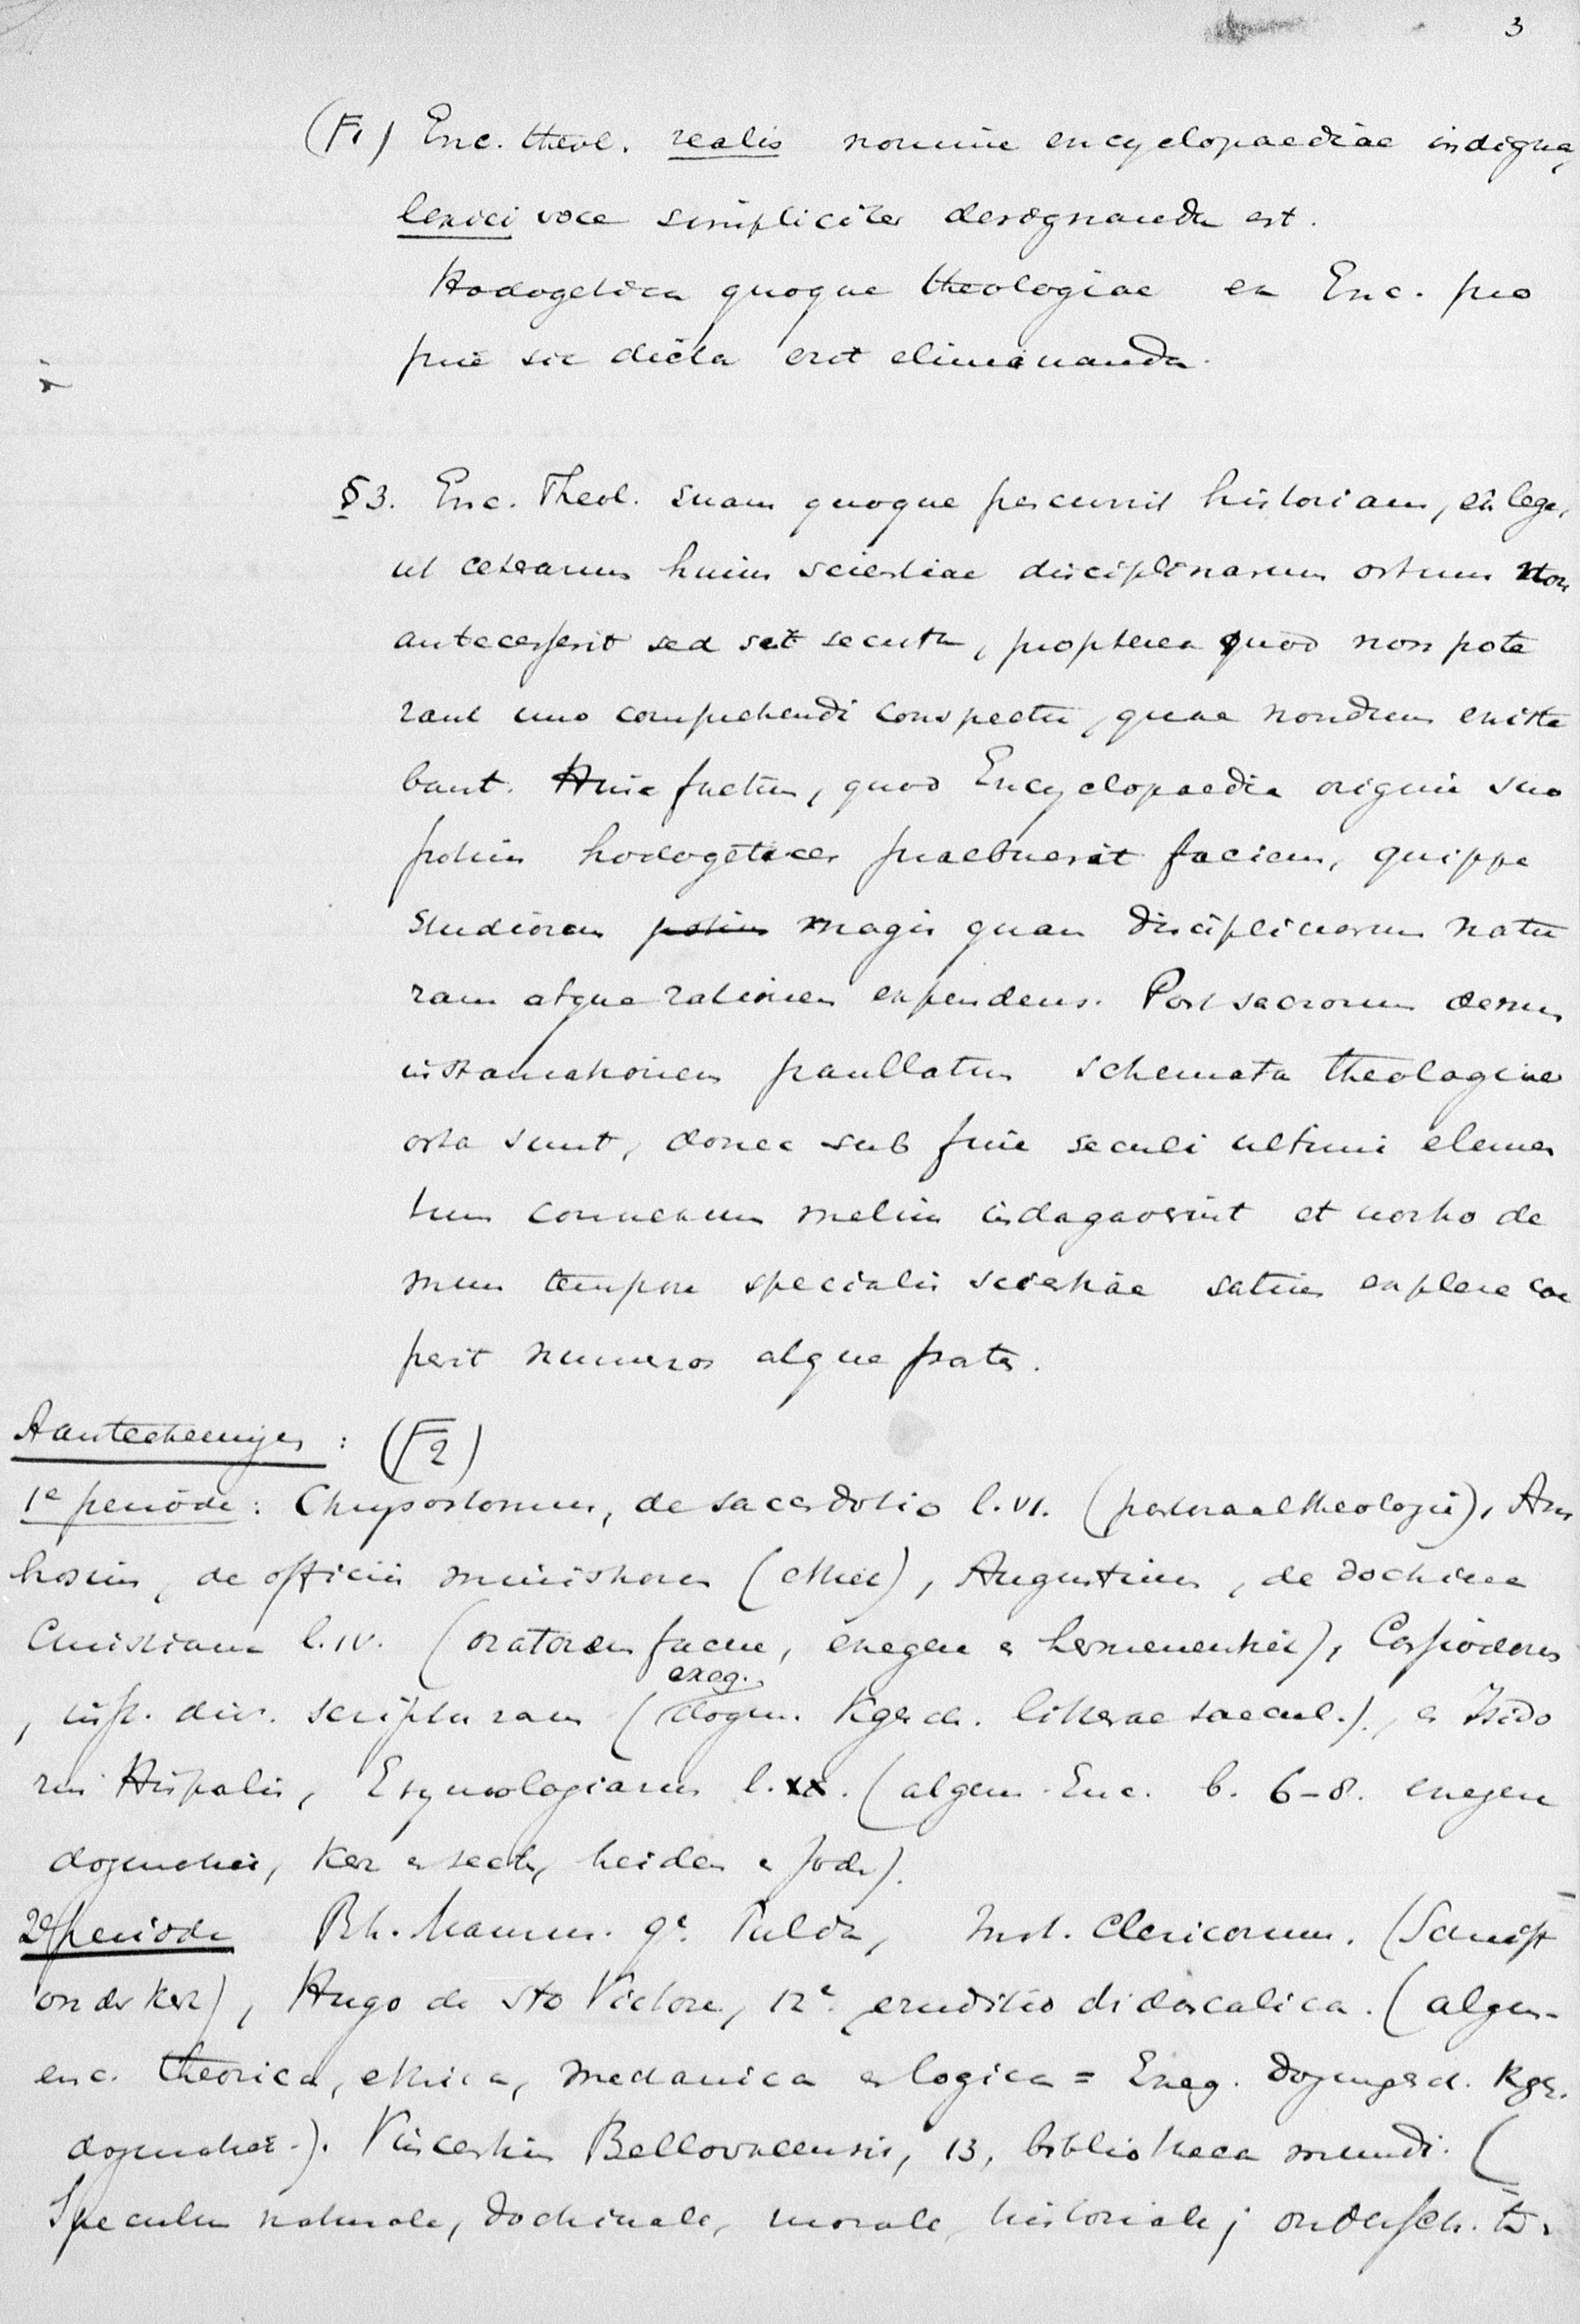 3
(F1) Enc. theol. realis nomine encyclopaediae indigna,
lexici voce simpliciter designanda est.
Hodogetica quoque theologiae ex Enc. pro
prie sic dicta erit eliminanda.
§3. Enc. Theol. suam quoque percurrit historiam, ea lege,
ut ceterarum huius scientiae disciplinarum ortum non
antecesserit sed sit secuta, propterea quod non pote
rant uno comprehendi conspectu, quae nondum existe
bant. Hinc factum, quod Encyclopaedia origine sua
potius hodogetices praebuerit faciem, quippe
studiorum potius magis quam disciplinarum natu
ram atque rationem expendens. Post sacrorum demum
instaurationem paullatim schemata theologiae
orta sunt, donec sub fine seculi ultimi elemen
tum connexum melius indagaverint et nostro de
mum tempore specialis scientiae satius explere coe
perit numeros atque partes.
Aanteekeningen : (F2)
1e periode: Chrysostomus, de sacerdotio l.VI. (pastoraaltheologie), Am
brosius, de officiis ministrorum (ethiek), Augustinus, de doctrina
Christiana l.IV. (oratorem facere, exegese en hermeneutiek), Cassiodorus
exeg.
, inst. div. scripturarum (dogm. Kgesch. litterae saecul.)., en Isido
rus Hispalis, Etymologiarum l.xx. (algem. Enc. b. 6-8. exegese
dogmatiek, Kerk en secte, heiden en Jode).
2e periode Rh. Maurus. 9e. Fulda, Inst. Clericorum. (Schrift
on de kerk), Hugo de Sto Victore, 12e. eruditio didascalica. (algem-
enc. theorica, ethica, mechanica en logica = Exeg. Dogmgesch. Kges.
dogmatiek-). Vincentius Bellovacensis, 13, bibliotheca mundi. (
Speculum naturale, doctrinale, morale, historiale; ondersch. t.